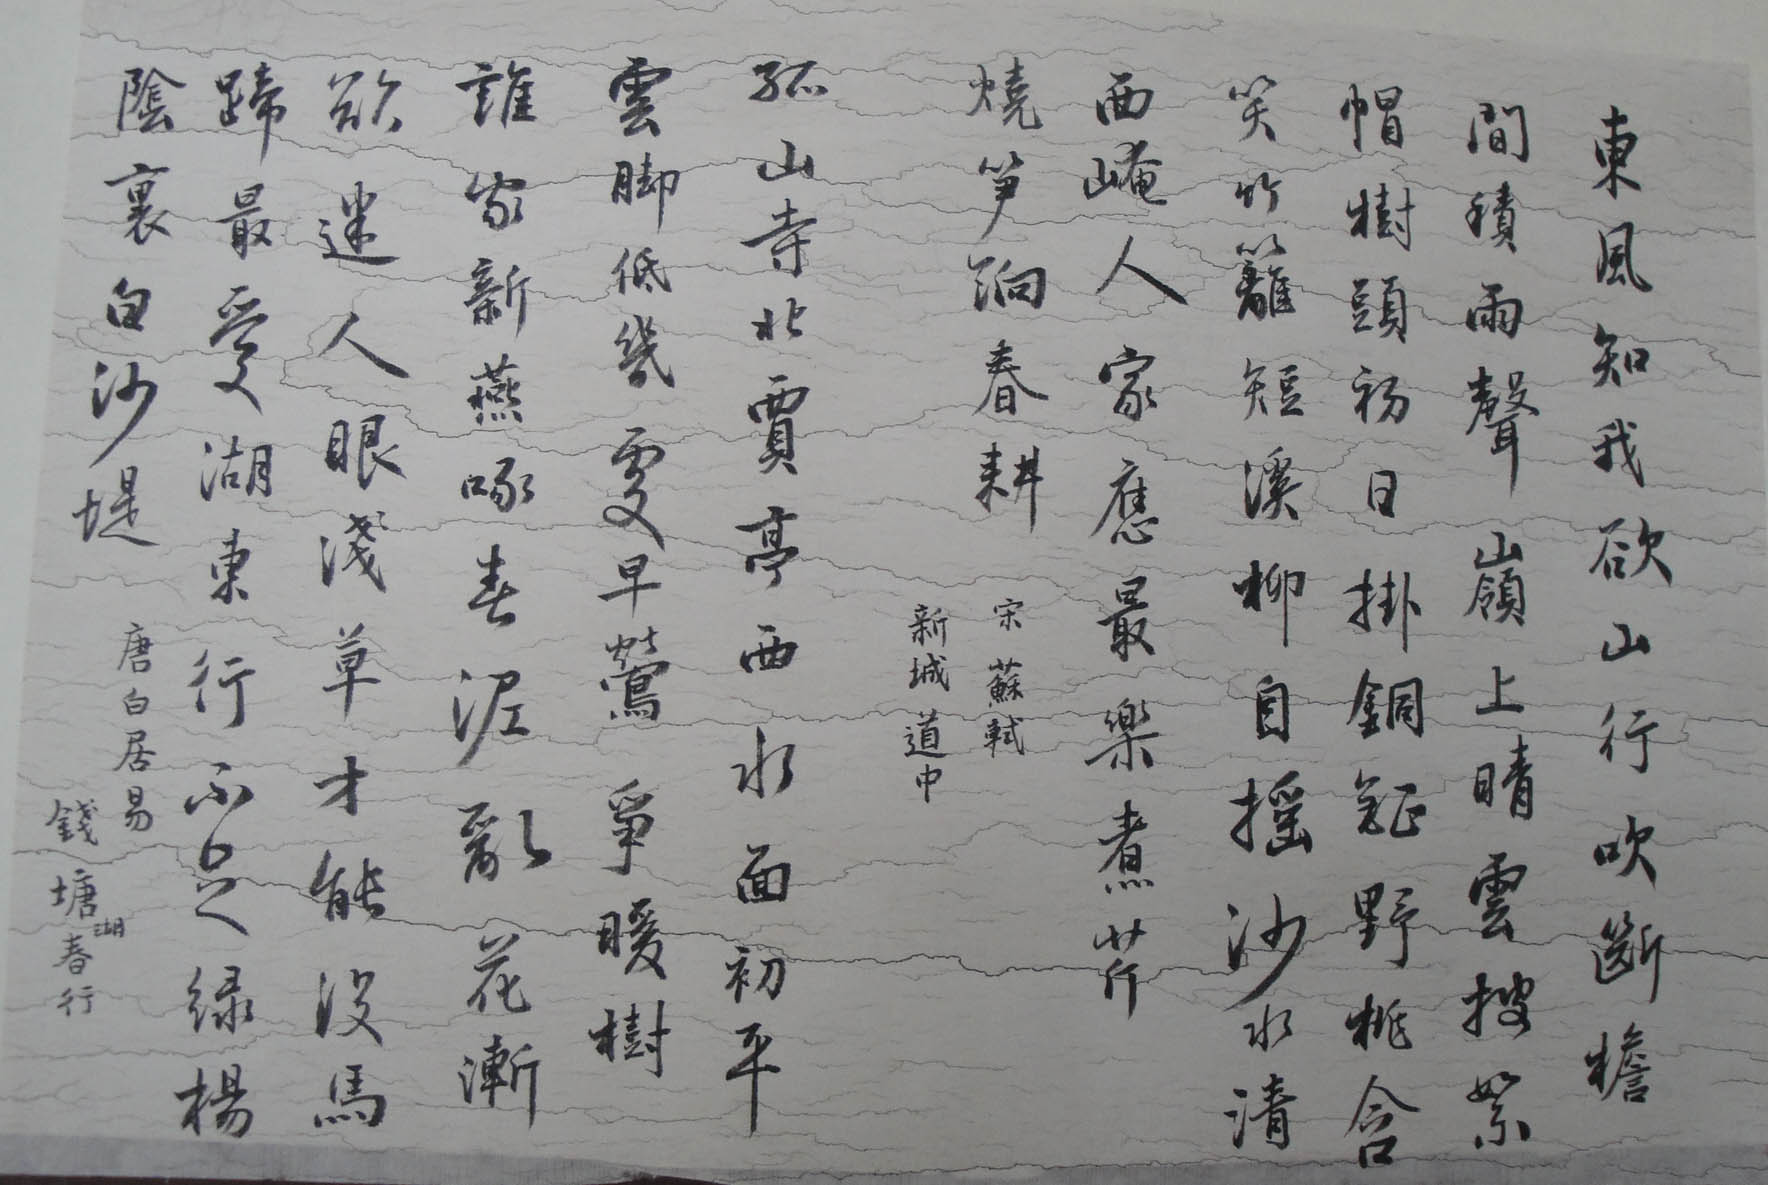 東風知我欲山行吹斷檐
間積雨聲嶺上晴雲披絮
帽樹頭初日掛銅鉦野桃含
笑竹籬短溪柳自搖沙水清
西崦人家應最樂煮芹
燒笋餉春耕
宋蘇軾
新城道中
孤山寺北賈亭西水面初平
雲脚低幾處早鶯爭暖樹
誰家新燕啄春泥亂花漸
欲迷人眼淺草才能没馬
蹄最愛湖東行不足緑楊
陰裏白沙堤
唐白居易
錢塘湖春行